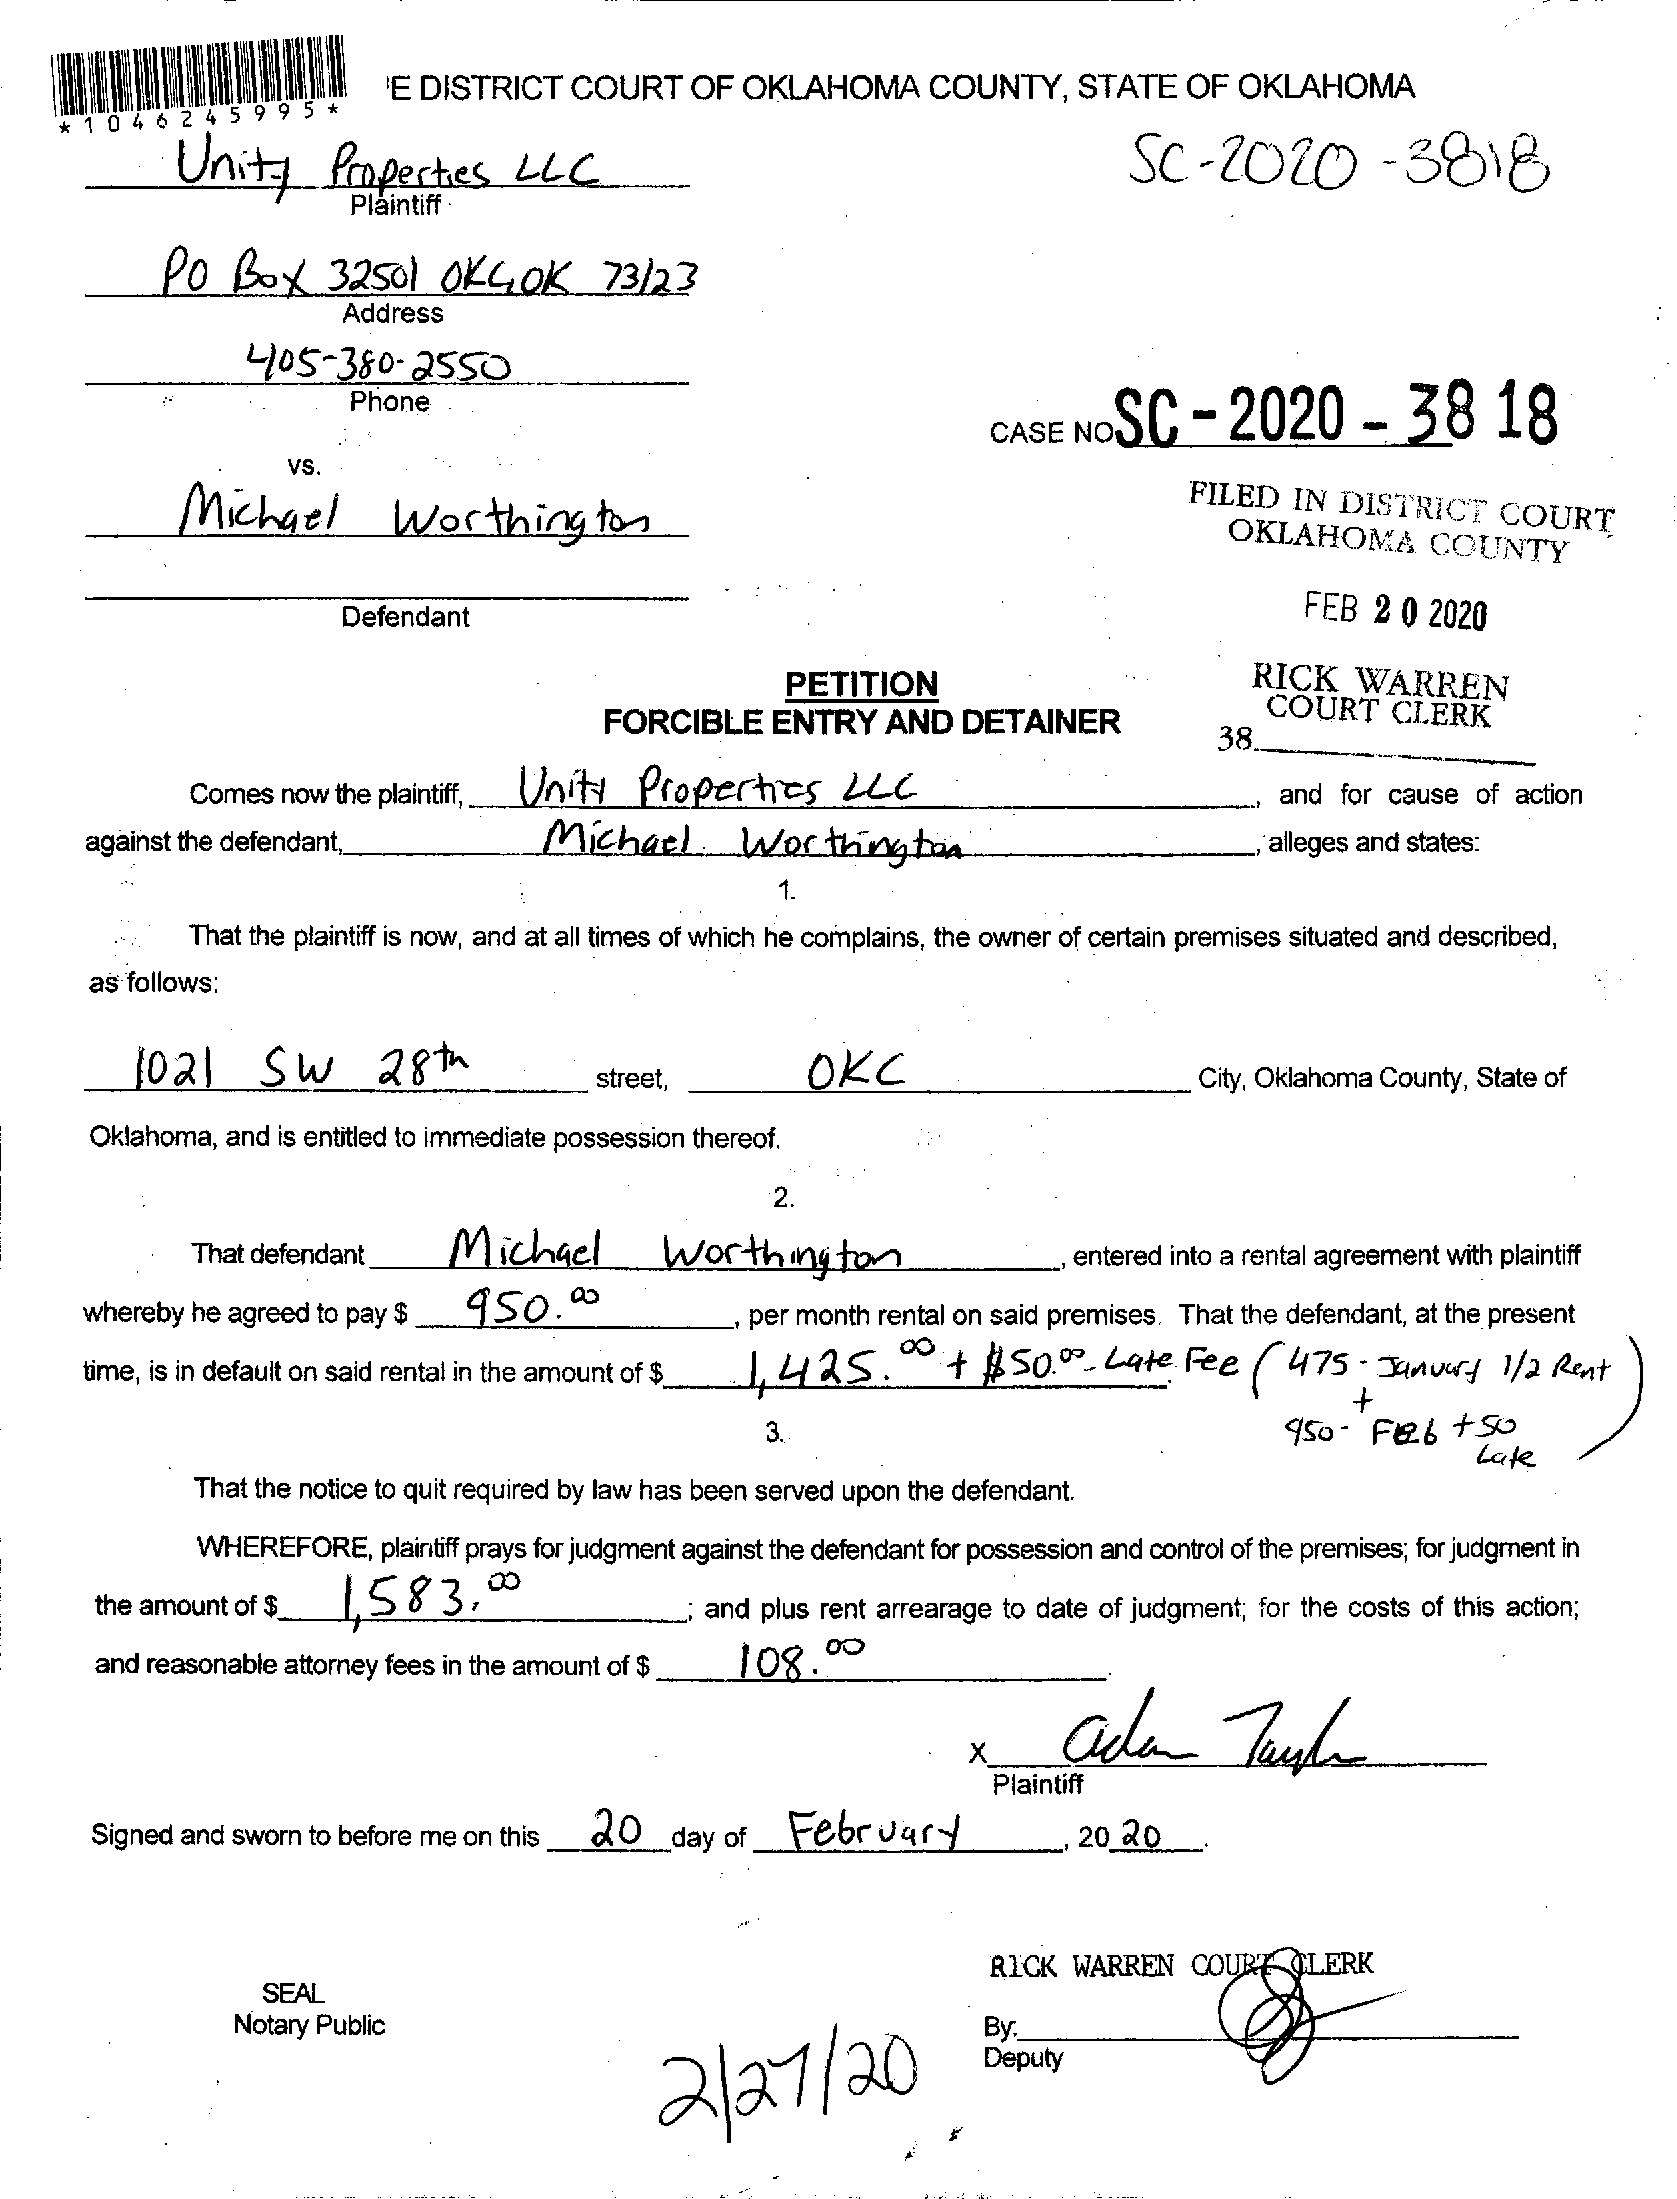 *1046245995*
'E DISTRICT COURT OF OKLAHOMA COUNTY, STATE OF OKLAHOMA
Unity Properties LLC
SC-2020-3818
Plaintiff
PO Box 32501 OKC, OK 73123
Address
405-380-2550
Phone
CASE NO SC-2020-3818
vs.
Michael Worthington
FILED IN DISTRICT COURT
OKLAHOMA COUNTY
Defendant
FEB 20 2020
PETITION
RICK WARREN
FORCIBLE ENTRY AND DETAINER
COURT CLERK
38
Comes now the plaintiff, Unity Properties LLC, and for cause of action
against the defendant, Michael Worthington, alleges and states:
1.
That the plaintiff is now, and at all times of which he complains, the owner of certain premises situated and described,
as follows:
1021 SW 28th street, OKC City, Oklahoma County, State of
Oklahoma, and is entitled to immediate possession thereof.
2.
That defendant Michael Worthington, entered into a rental agreement with plaintiff
whereby he agreed to pay $ 950.00, per month rental on said premises. That the defendant, at the present
time, is in default on said rental in the amount of $ 1,425.00 + $50.00 - Late Fee (475 - January 1/2 Rent
+
950 - Feb + 50
Late)
3.
That the notice to quit required by law has been served upon the defendant.
WHEREFORE, plaintiff prays for judgment against the defendant for possession and control of the premises; for judgment in
the amount of $ 1,583.00; and plus rent arrearage to date of judgment; for the costs of this action;
and reasonable attorney fees in the amount of $ 108.00.
x Adam Taylor
Plaintiff
Signed and sworn to before me on this 20 day of February, 2020.
RICK WARREN COURT CLERK
SEAL
Notary Public
By:
Deputy
2/27/20